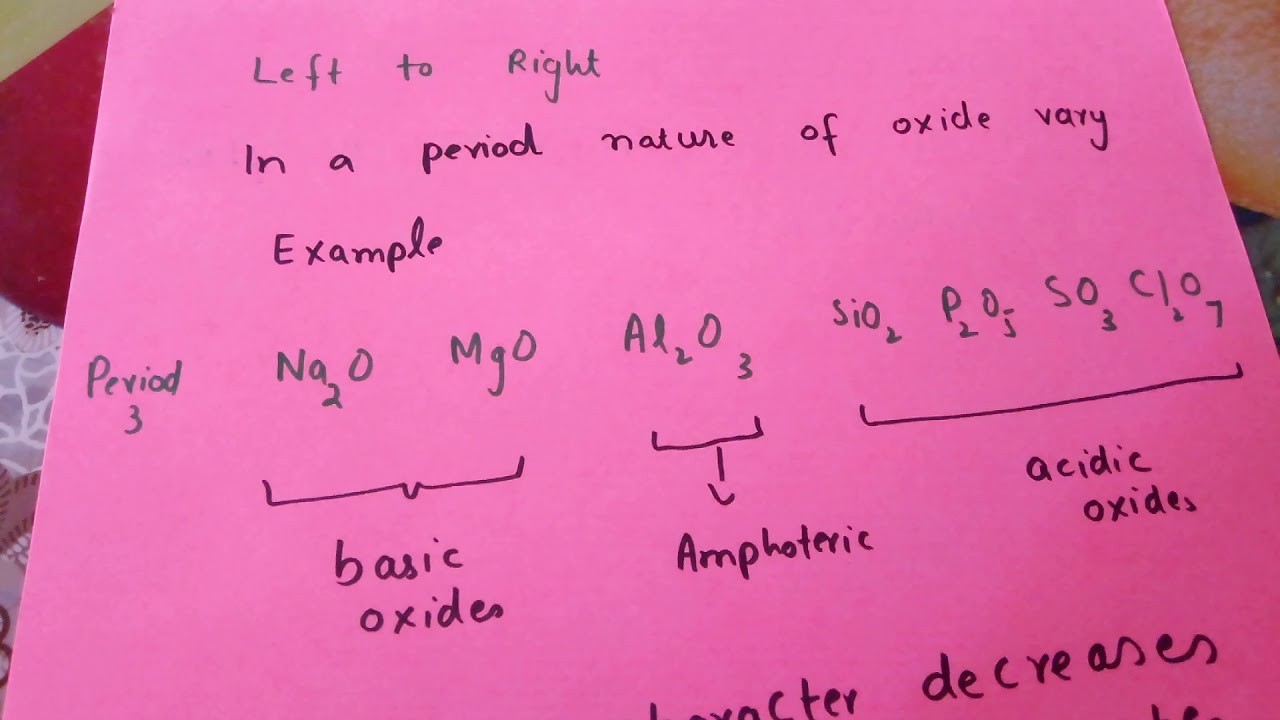 Left to Right
In a period nature of oxide vary
Example
Period 3 Na₂O MgO Al₂O₃ SiO₂ P₂O₅ SO₃ Cl₂O₇
basic oxides
Amphoteric
acidic oxides
decreases